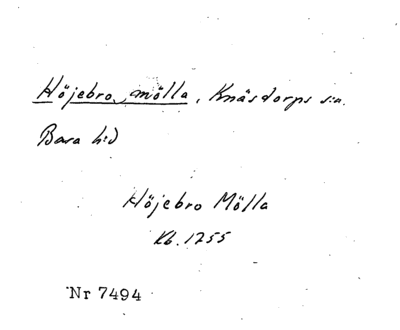 Höjebro mölla, Knäsdorps s:n.
Bara h:d
Höjebro Mölla
Kb. 1755
Nr 7494